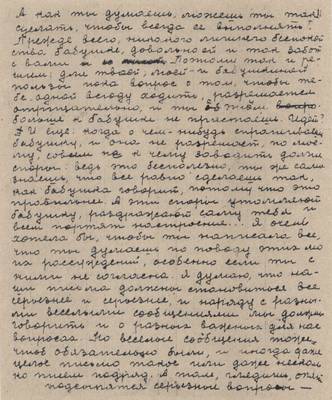 А как ты думаешь, можешь ты так
сделать, чтобы всегда её выполнять?
Прежде всего, никакого лишнего беспокой
ства бабушке, довольной и так забот
с вами и Поэтому так и ре-
шим: для твоей, моей и бабушкиной
пользы пока вопрос о том, чтобы те-
бе одной всюду ходить разрешается
отрицательно, и ты об этом
больше к бабушке не приставай. Идёт?
А и ещё: когда о чем-нибудь спрашиваешь
бабушку, и она не разрешает, по мое-
му, совсем не к чему заводить долгие
споры: ведь это бесполезно, ты же сама
знаешь, что все равно сделаешь так,
как бабушка говорит, потому что это
правильнее. А эти споры утомляют
бабушку, раздражают саму тебя и
всем портят настроение... Я очень
хотела бы, чтобы ты написала все,
что ты думаешь по поводу этих мо
их рассуждений, особенно если ты с
ними не согласна. Я думаю, что на-
ши письма должны становиться все
серьезнее и серьезнее, и наряду с разны-
ми веселыми сообщениями мы должны
говорить и о разных важных для нас
вопросах. Но веселые сообщения тоже,
чтоб обязательно были, и иногда даже
целое письмо такое или даже несколь
ко писем подряд. А там, глядишь, опять
подоспятся серьезные вопросы —